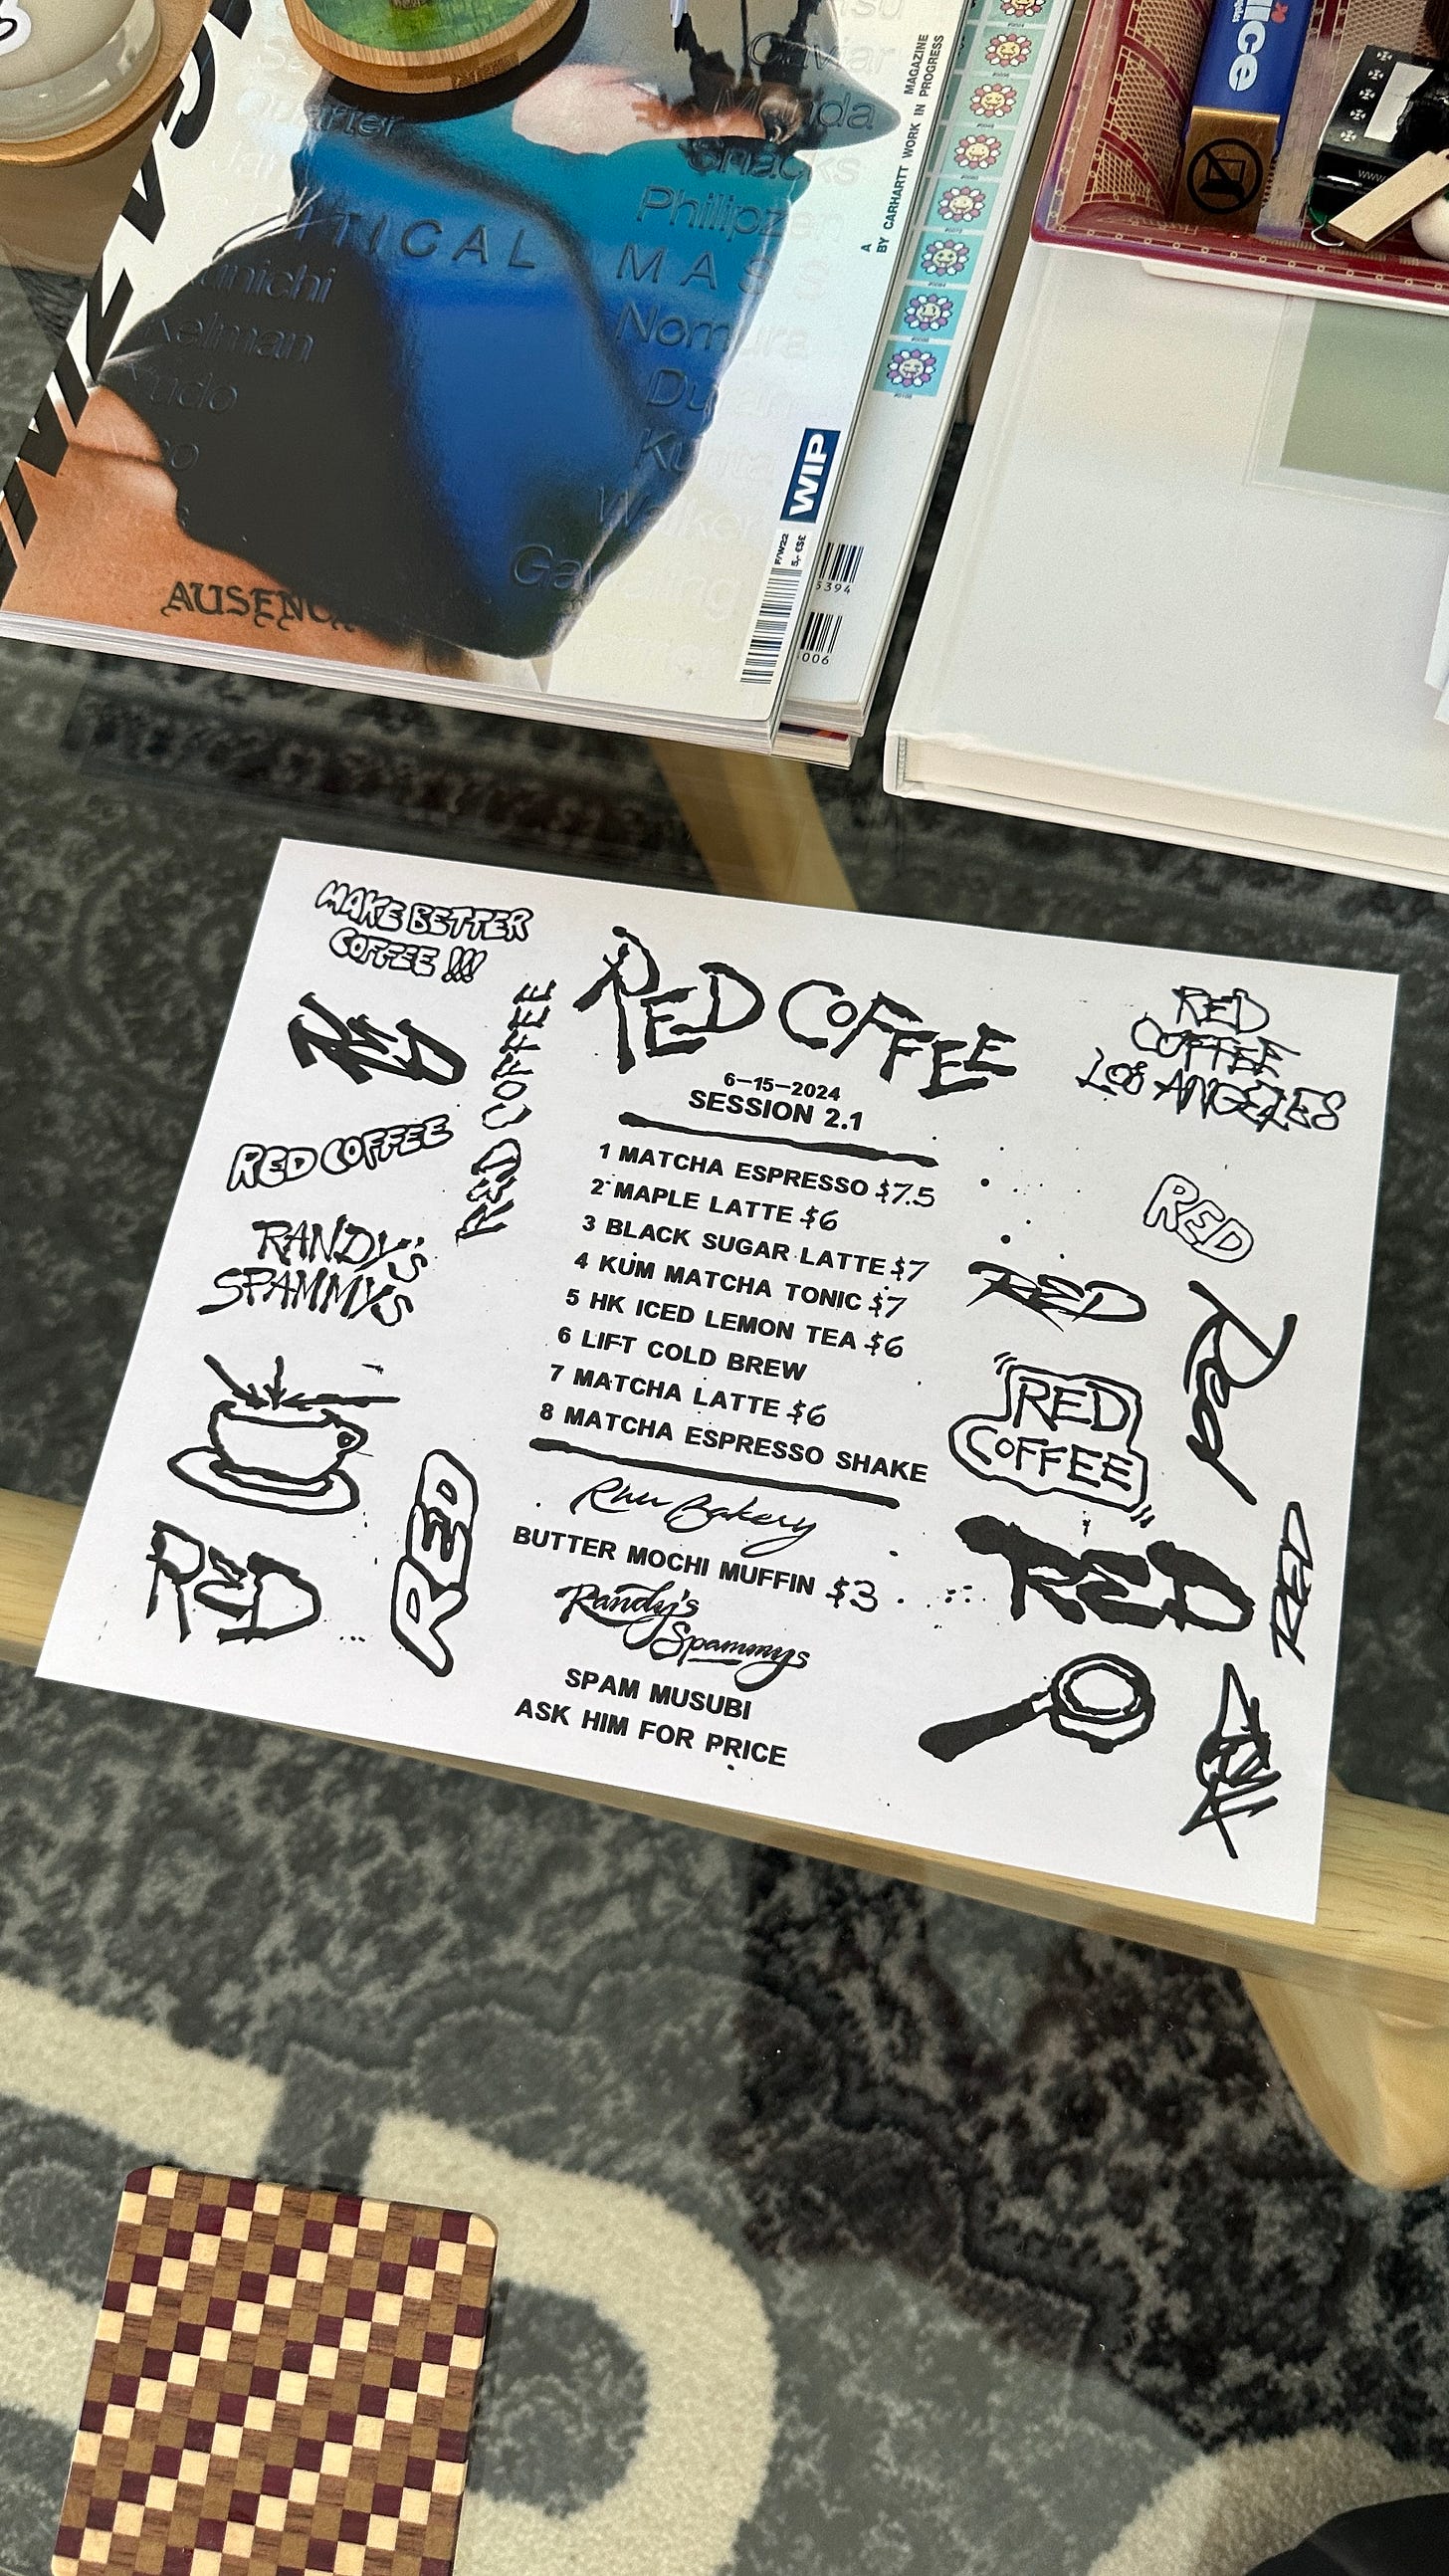 Caviar
Quarter
Snacks
Philipzen
TICAL
MASS
Nomura
Kelman
Kudo
Walker
AUSENC
A
MAGAZINE
BY CARHARTT WORK IN PROGRESS
WIP
F/W22
5394
006
MAKE BETTER
COFFEE !!!
RED
RED COFFEE
RED COFFEE
RANDY'S
SPAMMYS
RED
RED
RED COFFEE
6-15-2024
SESSION 2.1
1 MATCHA ESPRESSO $7.5
2 MAPLE LATTE $6
3 BLACK SUGAR LATTE $7
4 KUM MATCHA TONIC $7
5 HK ICED LEMON TEA $6
6 LIFT COLD BREW
7 MATCHA LATTE $6
8 MATCHA ESPRESSO SHAKE
Bakery
BUTTER MOCHI MUFFIN $3
Randy's
Spammys
SPAM MUSUBI
ASK HIM FOR PRICE
RED
COFFEE
LOS ANGELES
RED
RED
Red
RED
COFFEE
RED
RED